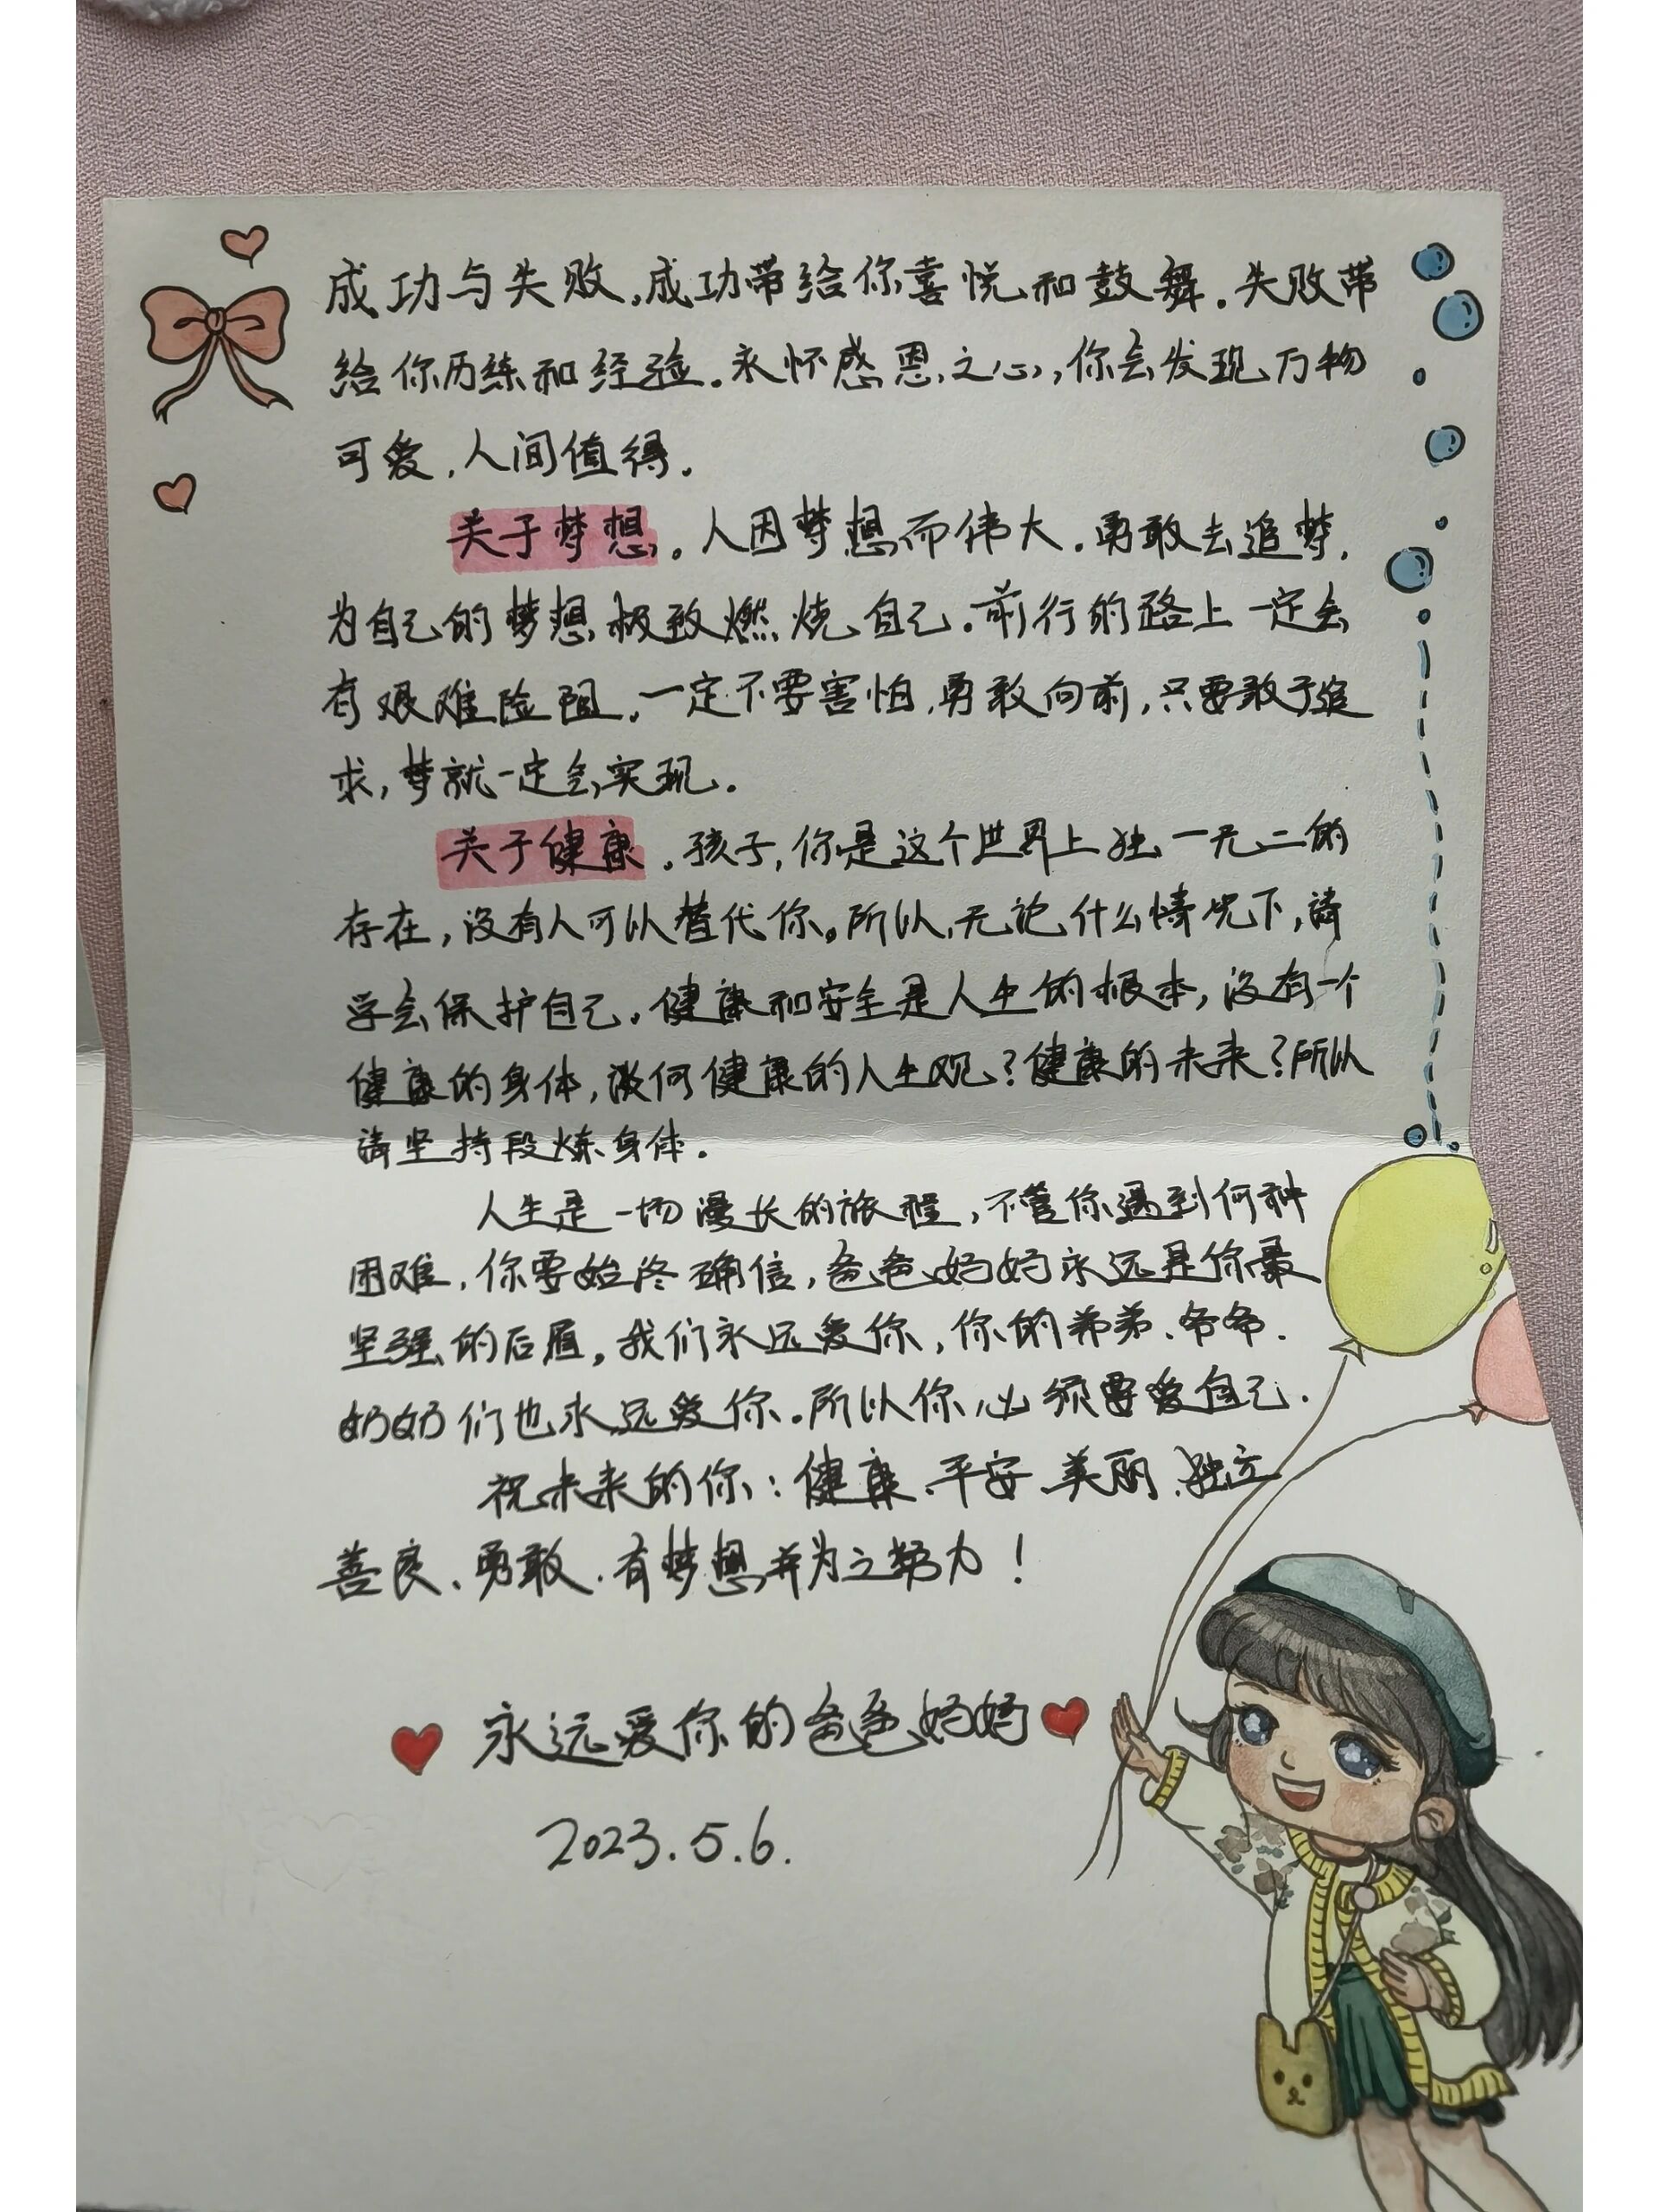 成功与失败,成功带给你喜悦和鼓舞.失败带
给你历练和经验.永怀感恩之心,你会发现万物
可爱,人间值得.
关于梦想.人因梦想而伟大.勇敢去追梦,
为自己的梦想极致燃烧自己.前行的路上一定会
有艰难险阻,一定不要害怕,勇敢向前,只要敢于追
求,梦就一定会实现.
关于健康.孩子,你是这个世界上独一无二的
存在,没有人可以替代你。所以,无论什么情况下,请
学会保护自己.健康和安全是人生的根本,没有一个
健康的身体,谈何健康的人生观?健康的未来?所以
请坚持段炼身体.
人生是一场漫长的旅程,不管你遇到何种
困难,你要始终确信,爸爸妈妈永远是你最
坚强的后盾,我们永远爱你,你的弟弟、爷爷、
奶奶们也永远爱你.所以你必须要爱自己.
祝未来的你:健康、平安、美丽、独立
善良、勇敢、有梦想并为之努力!
永远爱你的爸爸妈妈
2023.5.6.